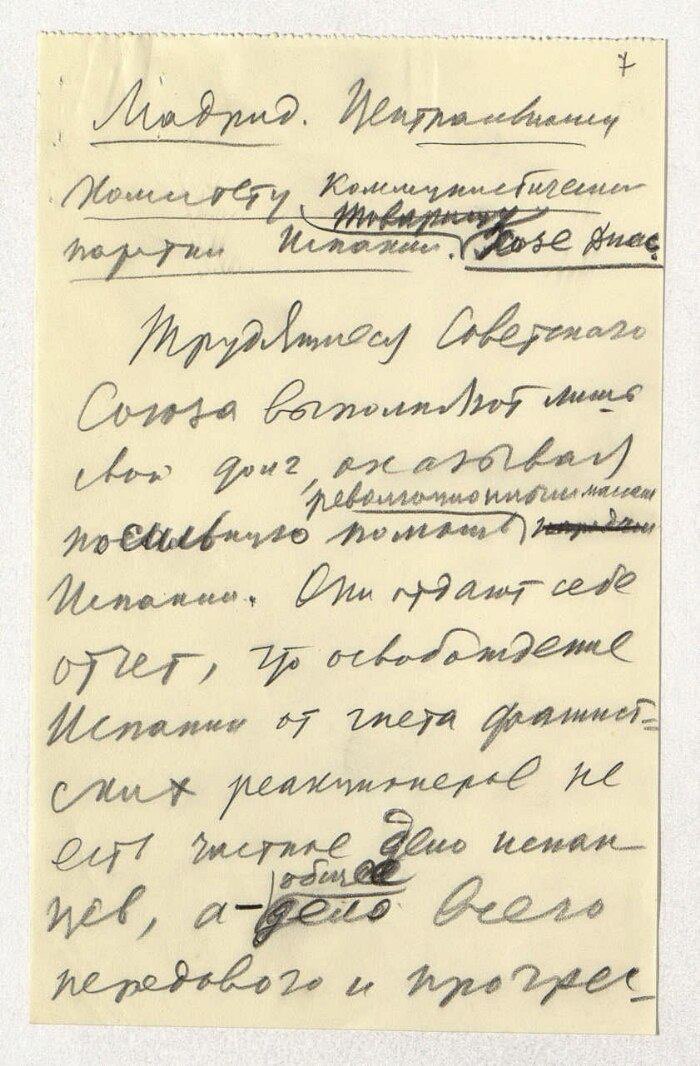 7
Мадрид. Центральному
Комитету Коммунистической
товарищу
партии Испании. Хозе Диас.
Трудящиеся Советского
Союза выполняют лишь
свой долг, оказывая
революционным массам
посильную помощь
Испании. Они отдают себе
отчет, что освобождение
Испании от гнета фашист=
ских реакционеров не
есть частное дело испан-
общее
цев, а - дело всего
передового и прогрес-